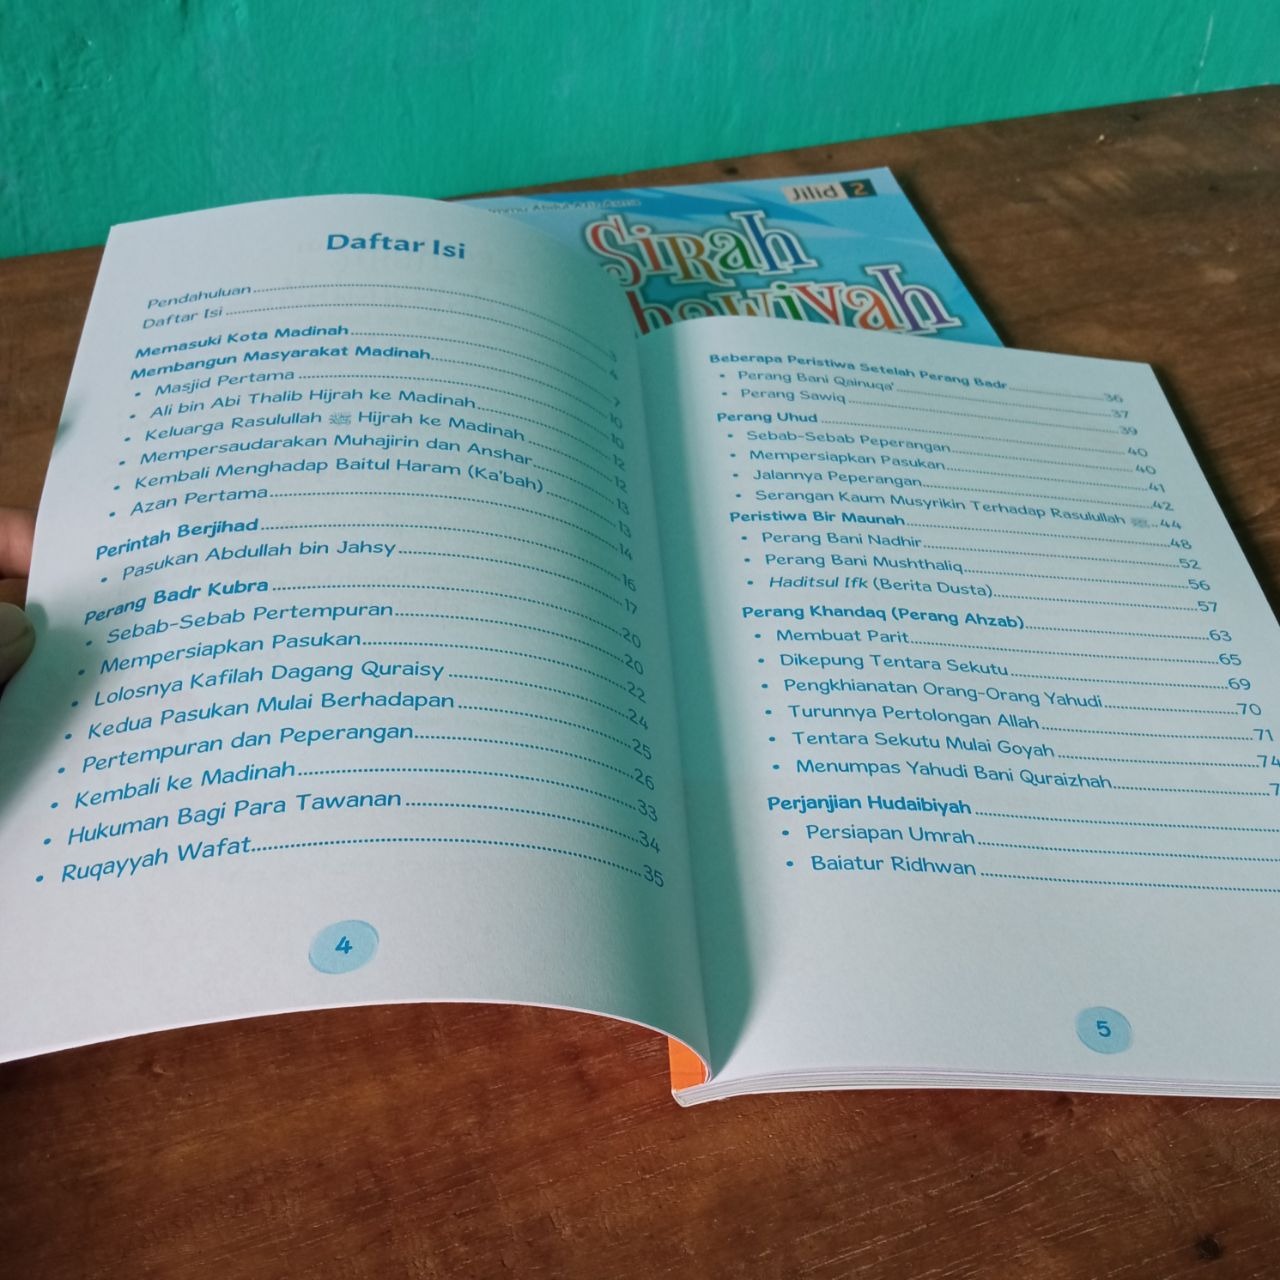 Jilid 2
Sirah
Daftar Isi
Pendahuluan 3
Daftar Isi 4
Memasuki Kota Madinah 7
Membangun Masyarakat Madinah 10
• Masjid Pertama 10
• Ali bin Abi Thalib Hijrah ke Madinah 12
• Keluarga Rasulullah ﷺ Hijrah ke Madinah 12
• Mempersaudarakan Muhajirin dan Anshar 13
• Kembali Menghadap Baitul Haram (Ka'bah) 13
• Azan Pertama 14
Perintah Berjihad 16
• Pasukan Abdullah bin Jahsy 17
Perang Badr Kubra 20
• Sebab-Sebab Pertempuran 20
• Mempersiapkan Pasukan 22
• Lolosnya Kafilah Dagang Quraisy 24
• Kedua Pasukan Mulai Berhadapan 25
• Pertempuran dan Peperangan 26
• Kembali ke Madinah 33
• Hukuman Bagi Para Tawanan 34
• Ruqayyah Wafat 35
4
Beberapa Peristiwa Setelah Perang Badr 36
• Perang Bani Qainuqa' 37
• Perang Sawiq 39
Perang Uhud 40
• Sebab-Sebab Peperangan 40
• Mempersiapkan Pasukan 41
• Jalannya Peperangan 42
• Serangan Kaum Musyrikin Terhadap Rasulullah ﷺ 44
Peristiwa Bir Maunah 48
• Perang Bani Nadhir 52
• Perang Bani Mushthaliq 56
• Haditsul Ifk (Berita Dusta) 57
Perang Khandaq (Perang Ahzab) 63
• Membuat Parit 65
• Dikepung Tentara Sekutu 69
• Pengkhianatan Orang-Orang Yahudi 70
• Turunnya Pertolongan Allah 71
• Tentara Sekutu Mulai Goyah 74
• Menumpas Yahudi Bani Quraizhah
Perjanjian Hudaibiyah
• Persiapan Umrah
• Baiatur Ridhwan
5